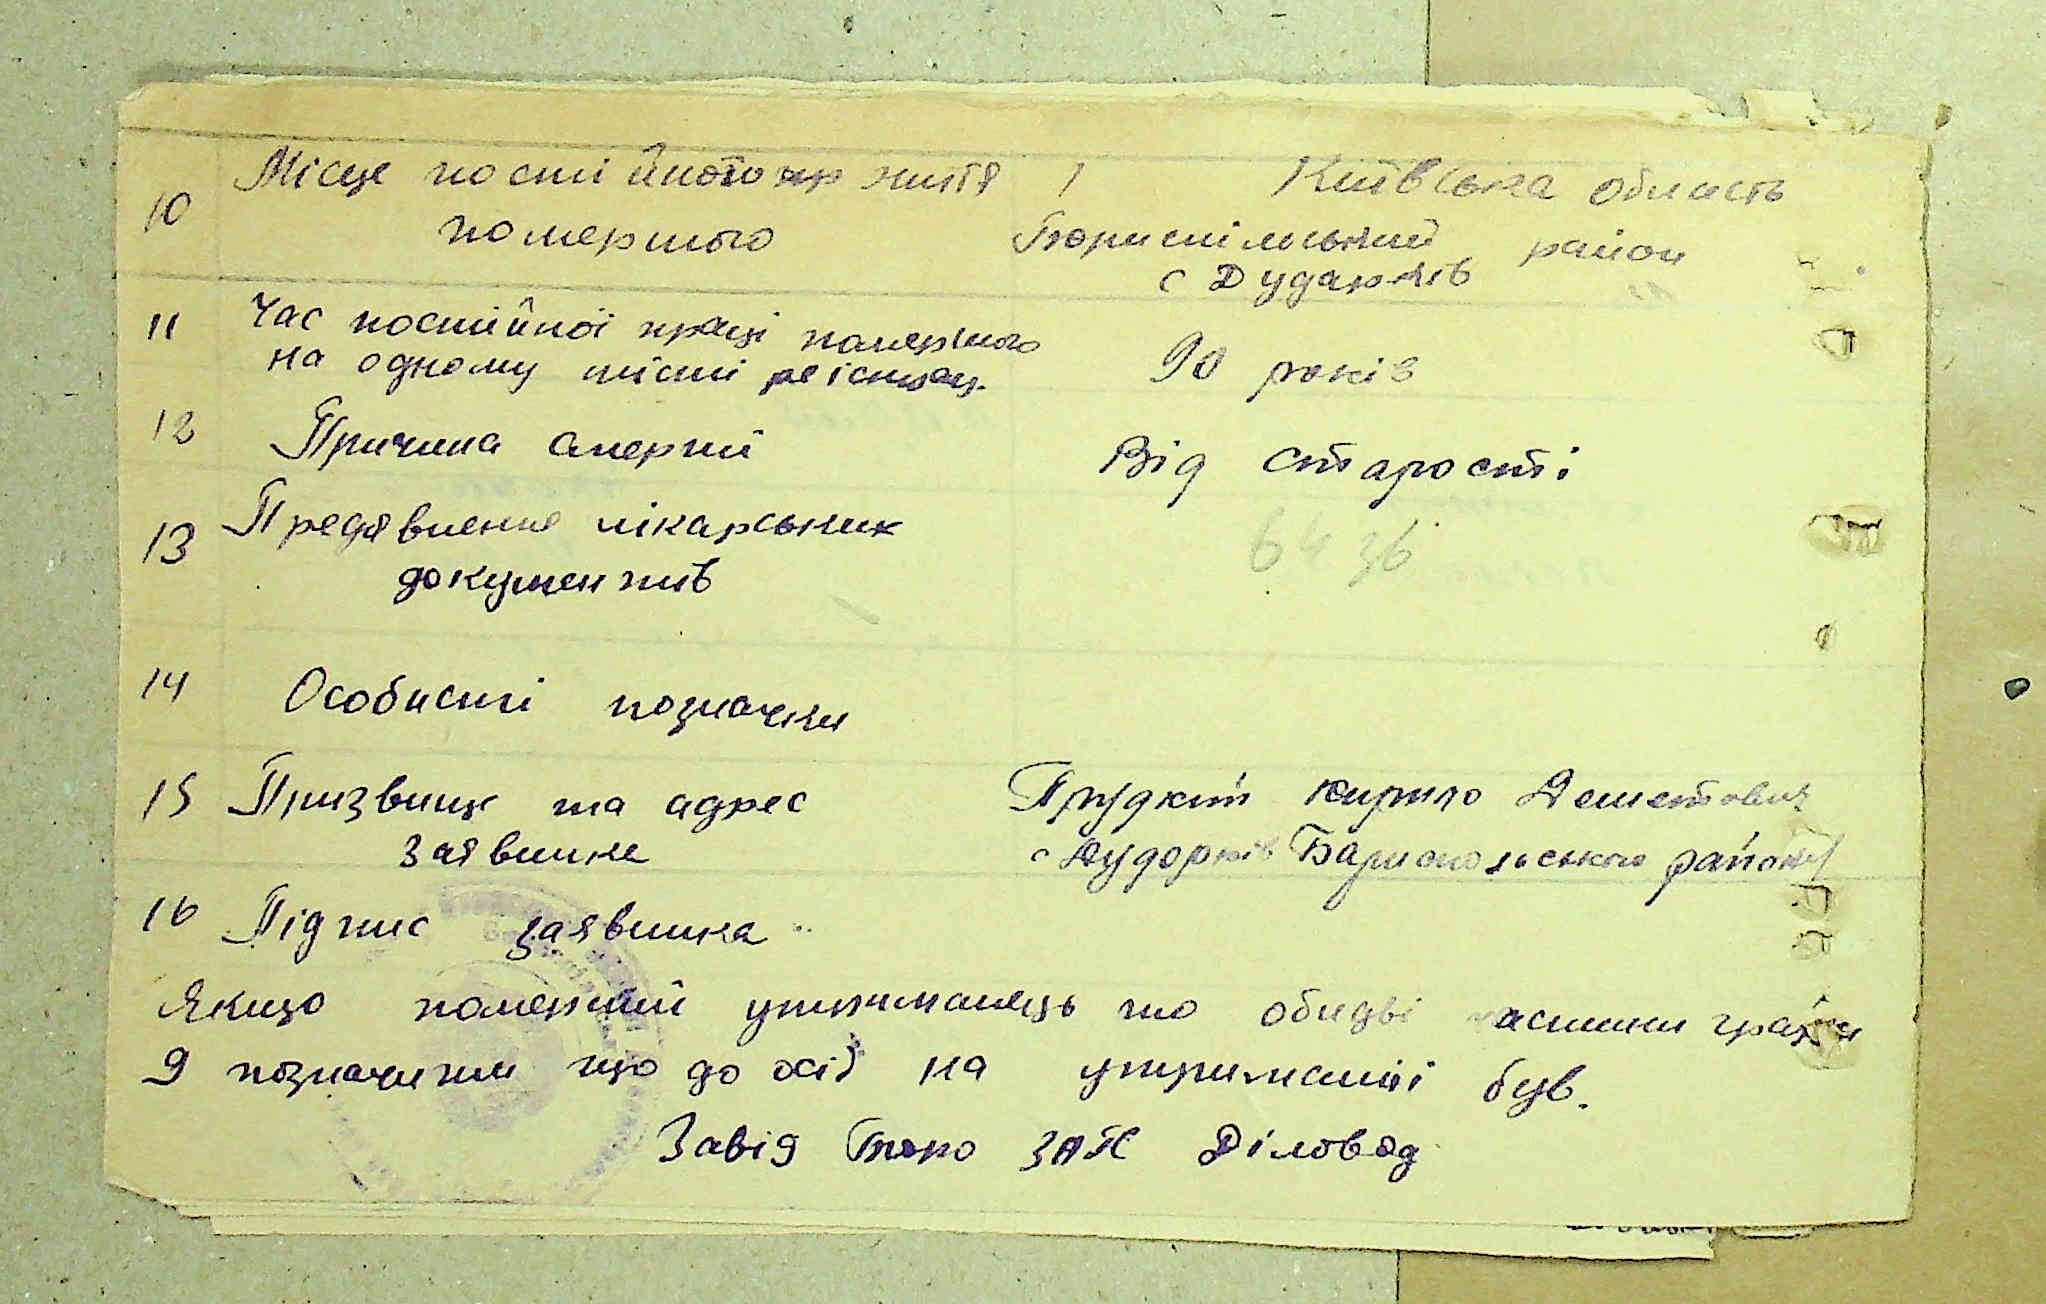 10 Місце постійного пр життя Київська область
помершого Бориспільський район
с Дударків
11 Час постійної праці помершого
на одному місті реєстрац. 90 років
12 Причина смерті Від старості
13 Предявлення лікарських
документів
14 Особисті позначки
15 Призвище та адрес Кирило
заявника с Дударків Бариспольського району
16 Підпис заявника
Якщо померший утриманець то обидві частини графи
9 позначити що до осіб на утриманні був.
Завід Бюро ЗАГС Діловод